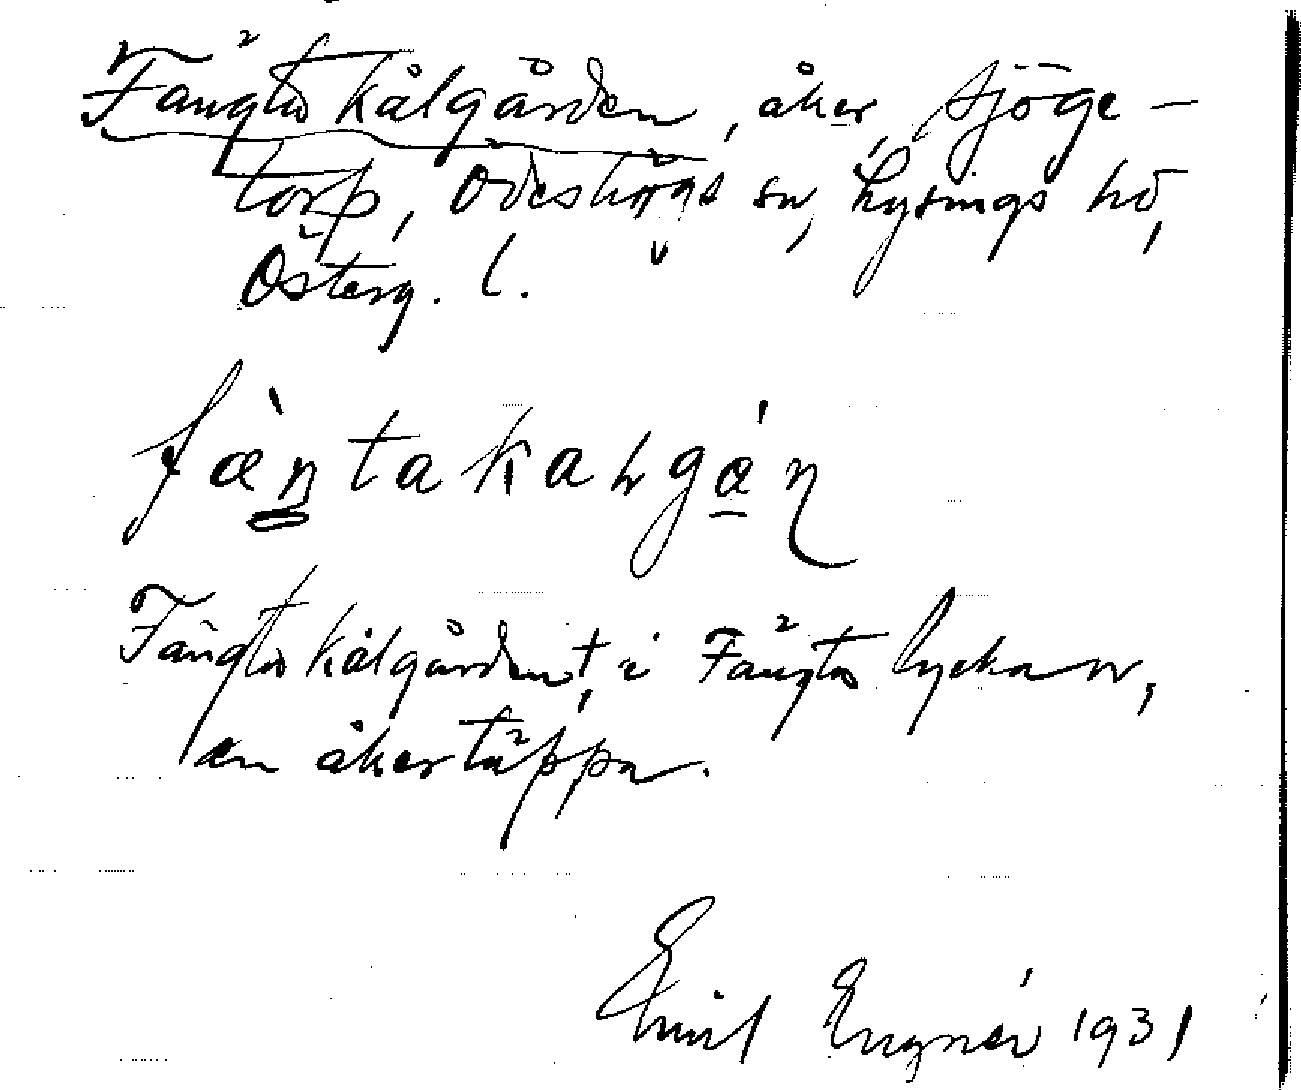 Fängta kålgården, åker, Sjöge-
torp, Ödeshögs sn, Lysings hd,
Österg. l.
fæ̀ntakaɽgán
Fängta kålgården, i Fängta lyckan,
en åkertäppa.
Emil Engnér 1931